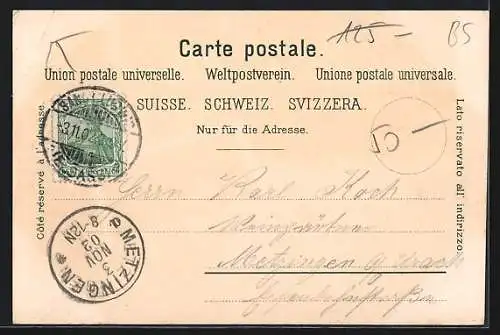 125 —
B5
Carte postale.
Union postale universelle. Weltpostverein. Unione postale universale.
SUISSE. SCHWEIZ. SVIZZERA.
Nur für die Adresse.
Côté réservé à l'adresse.
Lato riservato all' indirizzo.
3.11.02
Herrn Karl Koch
Weingärtner
Metzingen
METZINGEN
3
NOV
02
8-12N